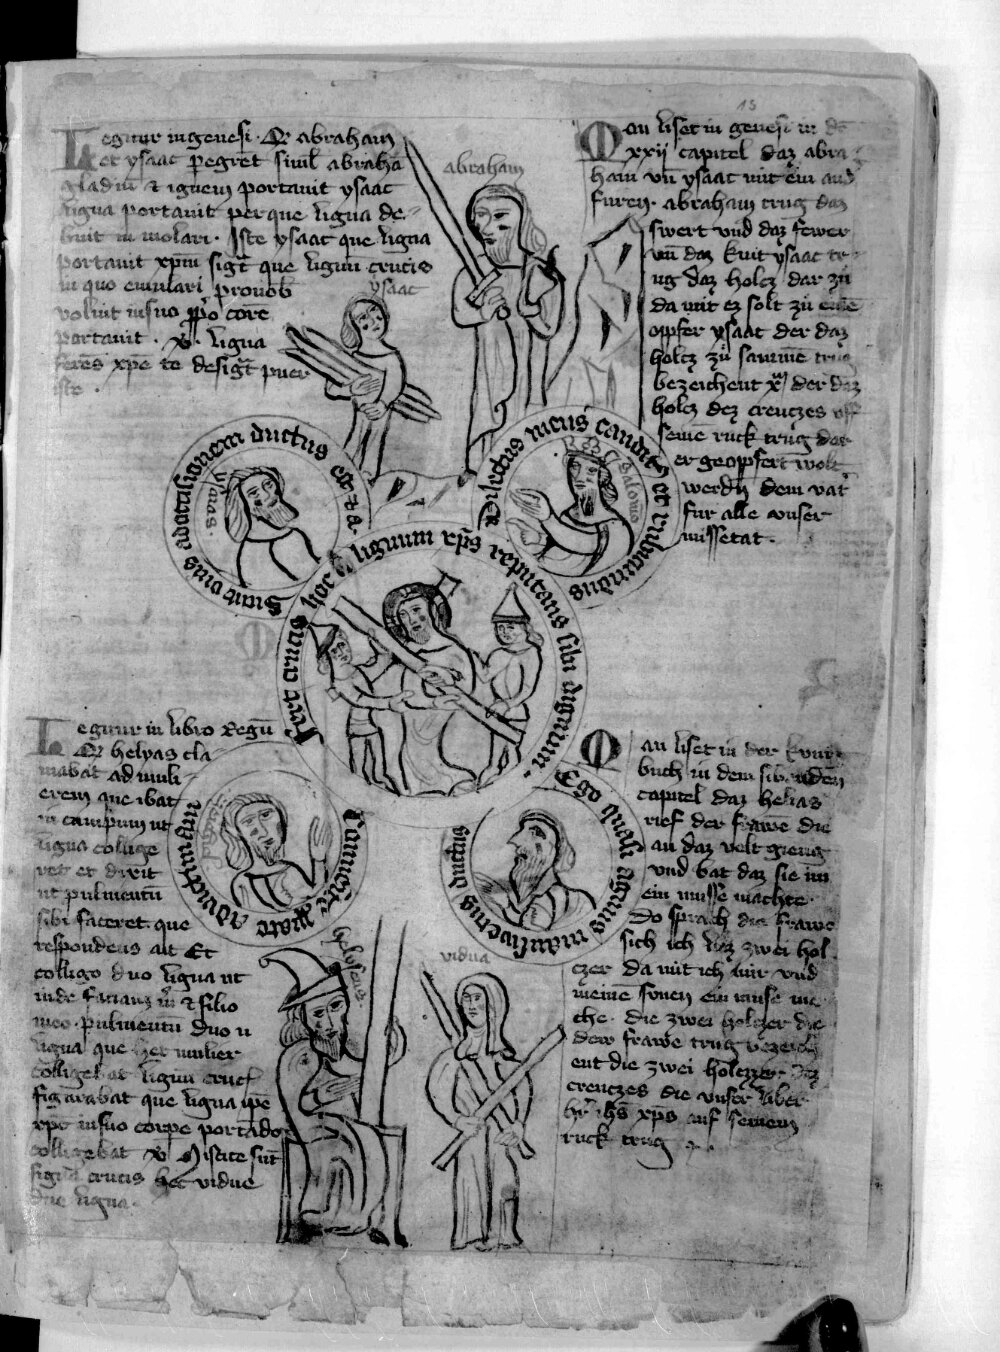 13
Legitur in genesi · Qr̄ abraham
et ysaac pergeret simul abrahā
gladiū & ignem portauit ysaac
ligna portauit per que ligna de-
buit īmolari · Iste ysaac que ligna
portauit xpm̄ sigt̄ que lignū crucis
in quo
voluit in suo ꝓprio corꝑe
portauit · v̄ · ligna
ferēs xp̄e te desigt̄ puer
iste ·
abraham
ysaac
Man liset in genesi in dē
xxij capitel daz abra-
ham vn̄ ysaac mit ein and
furen · abraham trug daz
swert vnd daz fewer
vn̄ daz kint ysaac tr-
ug daz holcz dar zu
da mit ez solt zu eine
opfer ysaac der daz
holcz zu sammē trug
bezeichent xp̄m der daz
holcz dez creuczes vff
seinē ruck trug der
er geopfert wolt
werdn̄ dem vat̄
fur alle vnser
missetat ·
Sicut ouis ad occisionem ductus est &c
ysaias
Dilectus meus candidus et rubicundus
salomo
Fert crucis hoc lignum xp̄s reputans sibi dignum ·
Legitur in libro Regū
Qr̄ helyas cla-
mabat ad muli-
erem que ibat
in campum ut
ligna collige
ret et dixit
ut pulmentū
sibi faceret · que
respondens ait Et
colligo duo ligna ut
inde faciam m̄ & filio
meo · pulmentū duo
ligna que hec mulier
colligebat lignū cruc̄
figurabat que ligna ip̄e
xp̄c in suo corpe portādo
colligebat v̄ Mistice sūt
signa crucis hec vidue
due ligna ·
Venite mittamus lignum
Ego quasi agnus mansuetus ductus
helyseus
vidua
Man liset in der kunig
buch in dem sibenden
capitel daz helias
rief der frawe die
an daz velt gieng
vnd bat daz sie im
ein musse machte ·
Do sprach die frawe
sich ich liz zwei hol-
czer da mit ich mir vnd
meinē sunen ein muse ma-
che · die zwei holczer die
dew frawe trug bezeich
ent die zwei holczzer dez
creuczes die vnser liber
hr̄ ihs̄ xp̄s auf seinem
ruck trug